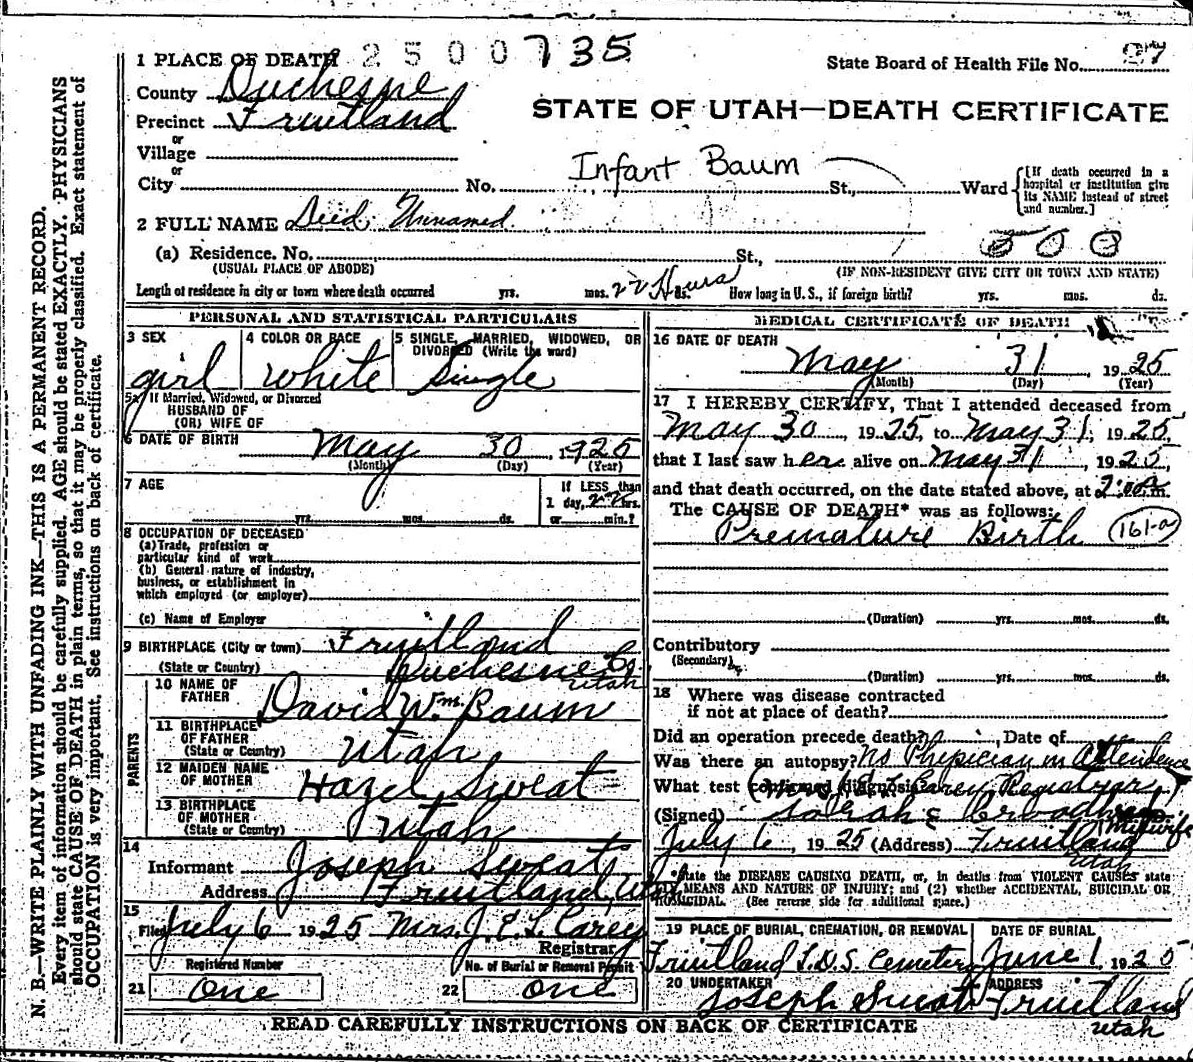 2500735
1 PLACE OF DEATH
State Board of Health File No. 27
County Duchesne
STATE OF UTAH—DEATH CERTIFICATE
Precinct Fruitland
or
Village
or
City No. Infant Baum St., Ward
[If death occurred in a hospital or institution give its NAME instead of street and number.]
2 FULL NAME Died Unnamed
500
(a) Residence. No. St.,
(USUAL PLACE OF ABODE) (IF NON-RESIDENT GIVE CITY OR TOWN AND STATE)
Length of residence in city or town where death occurred yrs. mos. 22 Hours ds. How long in U. S., if foreign birth? yrs. mos. ds.
PERSONAL AND STATISTICAL PARTICULARS
3 SEX 4 COLOR OR RACE 5 SINGLE, MARRIED, WIDOWED, OR DIVORCED (Write the word)
girl white Single
5a If Married, Widowed, or Divorced
HUSBAND OF
(OR) WIFE OF
6 DATE OF BIRTH May 30, 1925
(Month) (Day) (Year)
7 AGE
If LESS than
1 day, 22 hrs.
yrs. mos. ds. or min.?
8 OCCUPATION OF DECEASED
(a) Trade, profession or
particular kind of work
(b) General nature of industry,
business, or establishment in
which employed (or employer)
(c) Name of Employer
9 BIRTHPLACE (City or town) Fruitland
(State or Country) Duchesne Co
Utah
PARENTS
10 NAME OF
FATHER David Wm. Baum
11 BIRTHPLACE
OF FATHER
(State or Country) Utah
12 MAIDEN NAME
OF MOTHER Hazel Sweat
13 BIRTHPLACE
OF MOTHER
(State or Country) Utah
14
Informant Joseph Sweat
Address Fruitland, Utah
15
Filed July 6 1925 Mrs. J. E. L. Carey
Registrar
Registered Number No. of Burial or Removal Permit
21 One 22 one
MEDICAL CERTIFICATE OF DEATH
16 DATE OF DEATH
May 31, 1925
(Month) (Day) (Year)
17 I HEREBY CERTIFY, That I attended deceased from
May 30, 1925, to May 31, 1925,
that I last saw her alive on May 31, 1925,
and that death occurred, on the date stated above, at 2:00 a m.
The CAUSE OF DEATH* was as follows:
Premature Birth 161-a
(Duration) yrs. mos. ds.
Contributory
(Secondary)
(Duration) yrs. mos. ds.
18 Where was disease contracted
if not at place of death?
Did an operation precede death? Date of
Was there an autopsy? No Physician in Attendence
What test confirmed diagnosis? Carey Registrar
(Signed)
Midwife
July 6, 1925 (Address) Fruitland
Utah
*State the DISEASE CAUSING DEATH, or, in deaths from VIOLENT CAUSES state
(1) MEANS AND NATURE OF INJURY; and (2) whether ACCIDENTAL, SUICIDAL OR
HOMICIDAL. (See reverse side for additional space.)
19 PLACE OF BURIAL, CREMATION, OR REMOVAL DATE OF BURIAL
Fruitland L.D.S. Cemetery June 1 1925
20 UNDERTAKER ADDRESS
Joseph Sweat Fruitland
Utah
READ CAREFULLY INSTRUCTIONS ON BACK OF CERTIFICATE
N. B.—WRITE PLAINLY WITH UNFADING INK—THIS IS A PERMANENT RECORD.
Every item of information should be carefully supplied. AGE should be stated EXACTLY. PHYSICIANS
should state CAUSE OF DEATH in plain terms, so that it may be properly classified. Exact statement of
OCCUPATION is very important. See instructions on back of certificate.